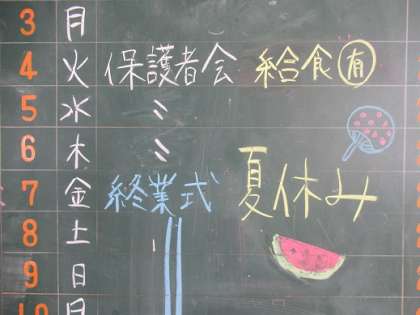 3 月
4 火 保護者会 給食有
5 水 〃
6 木 〃
7 金 終業式 夏休み
8 土
9 日
10 月